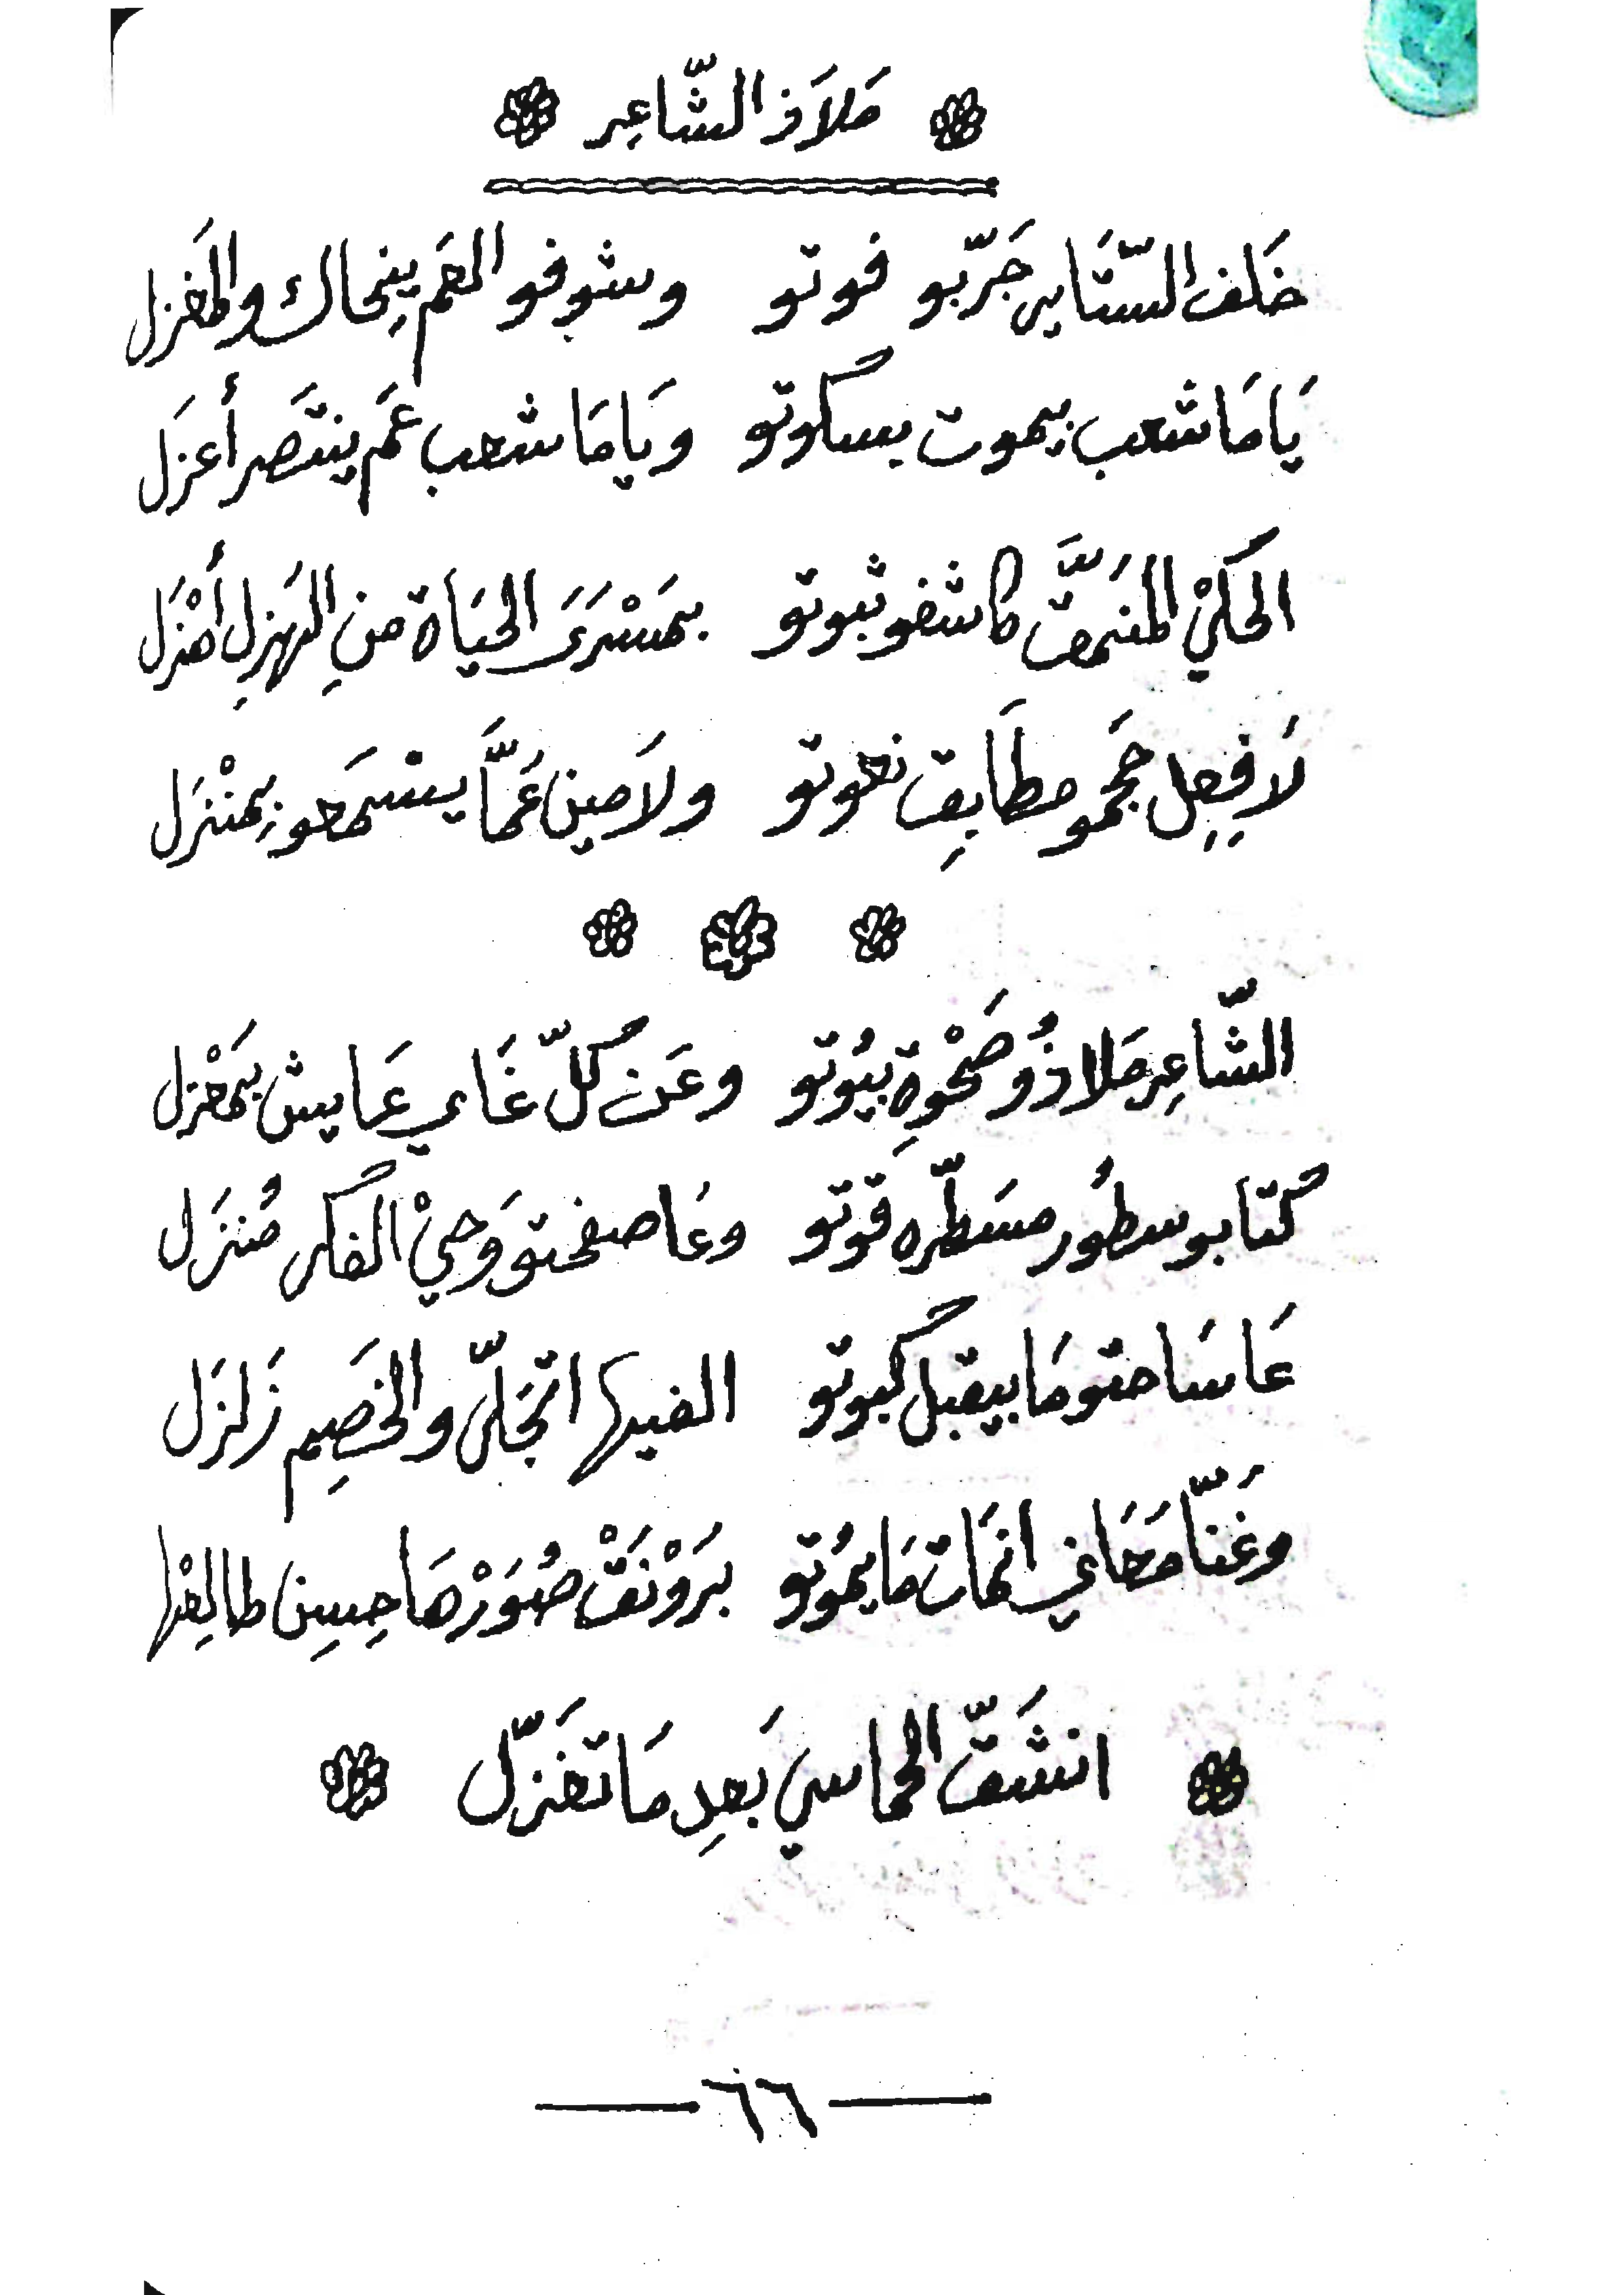 مَلاَذ الشّاعِر
خَلف السّتَاير جَرّبو فوتو وشوفو العَم يِنحاك والمَغزل
يَامَا شعب بيموت بسكوتو ويَامَا شعب عَم ينتَصر أعزَل
الحَكيْ المْنَمَّق كاشفو ثبوتو بمَسْرَى الحيَاة منِ الهَزِل أهْزَل
لاَ فِعِل حَجمو مطَابِق نعوتو ولاَ مين عَمَّا يسْمَعو بمَنْزَل
الشّاعِر مَلاذُو ضَحْوةِ بيُوتو وعَن كلّ غَاي عَايش بمَعْزل
كتابو سطُور مسَطّره قوتو وعَا صفحتو وَحيْ الفكر مُنزَل
عَا سَاحتو مَا بيقبل كبوتو الفيها اتجَلّى والخَصِم زَلزَل
وغَنّا مَعَاني انمَات مَا يمُوتو برَوْنَقْ صُوَرْهَا حِيِن طالِعْها
انشَقّ الحماسي بَعِد مَا تغَزّل
٦٦